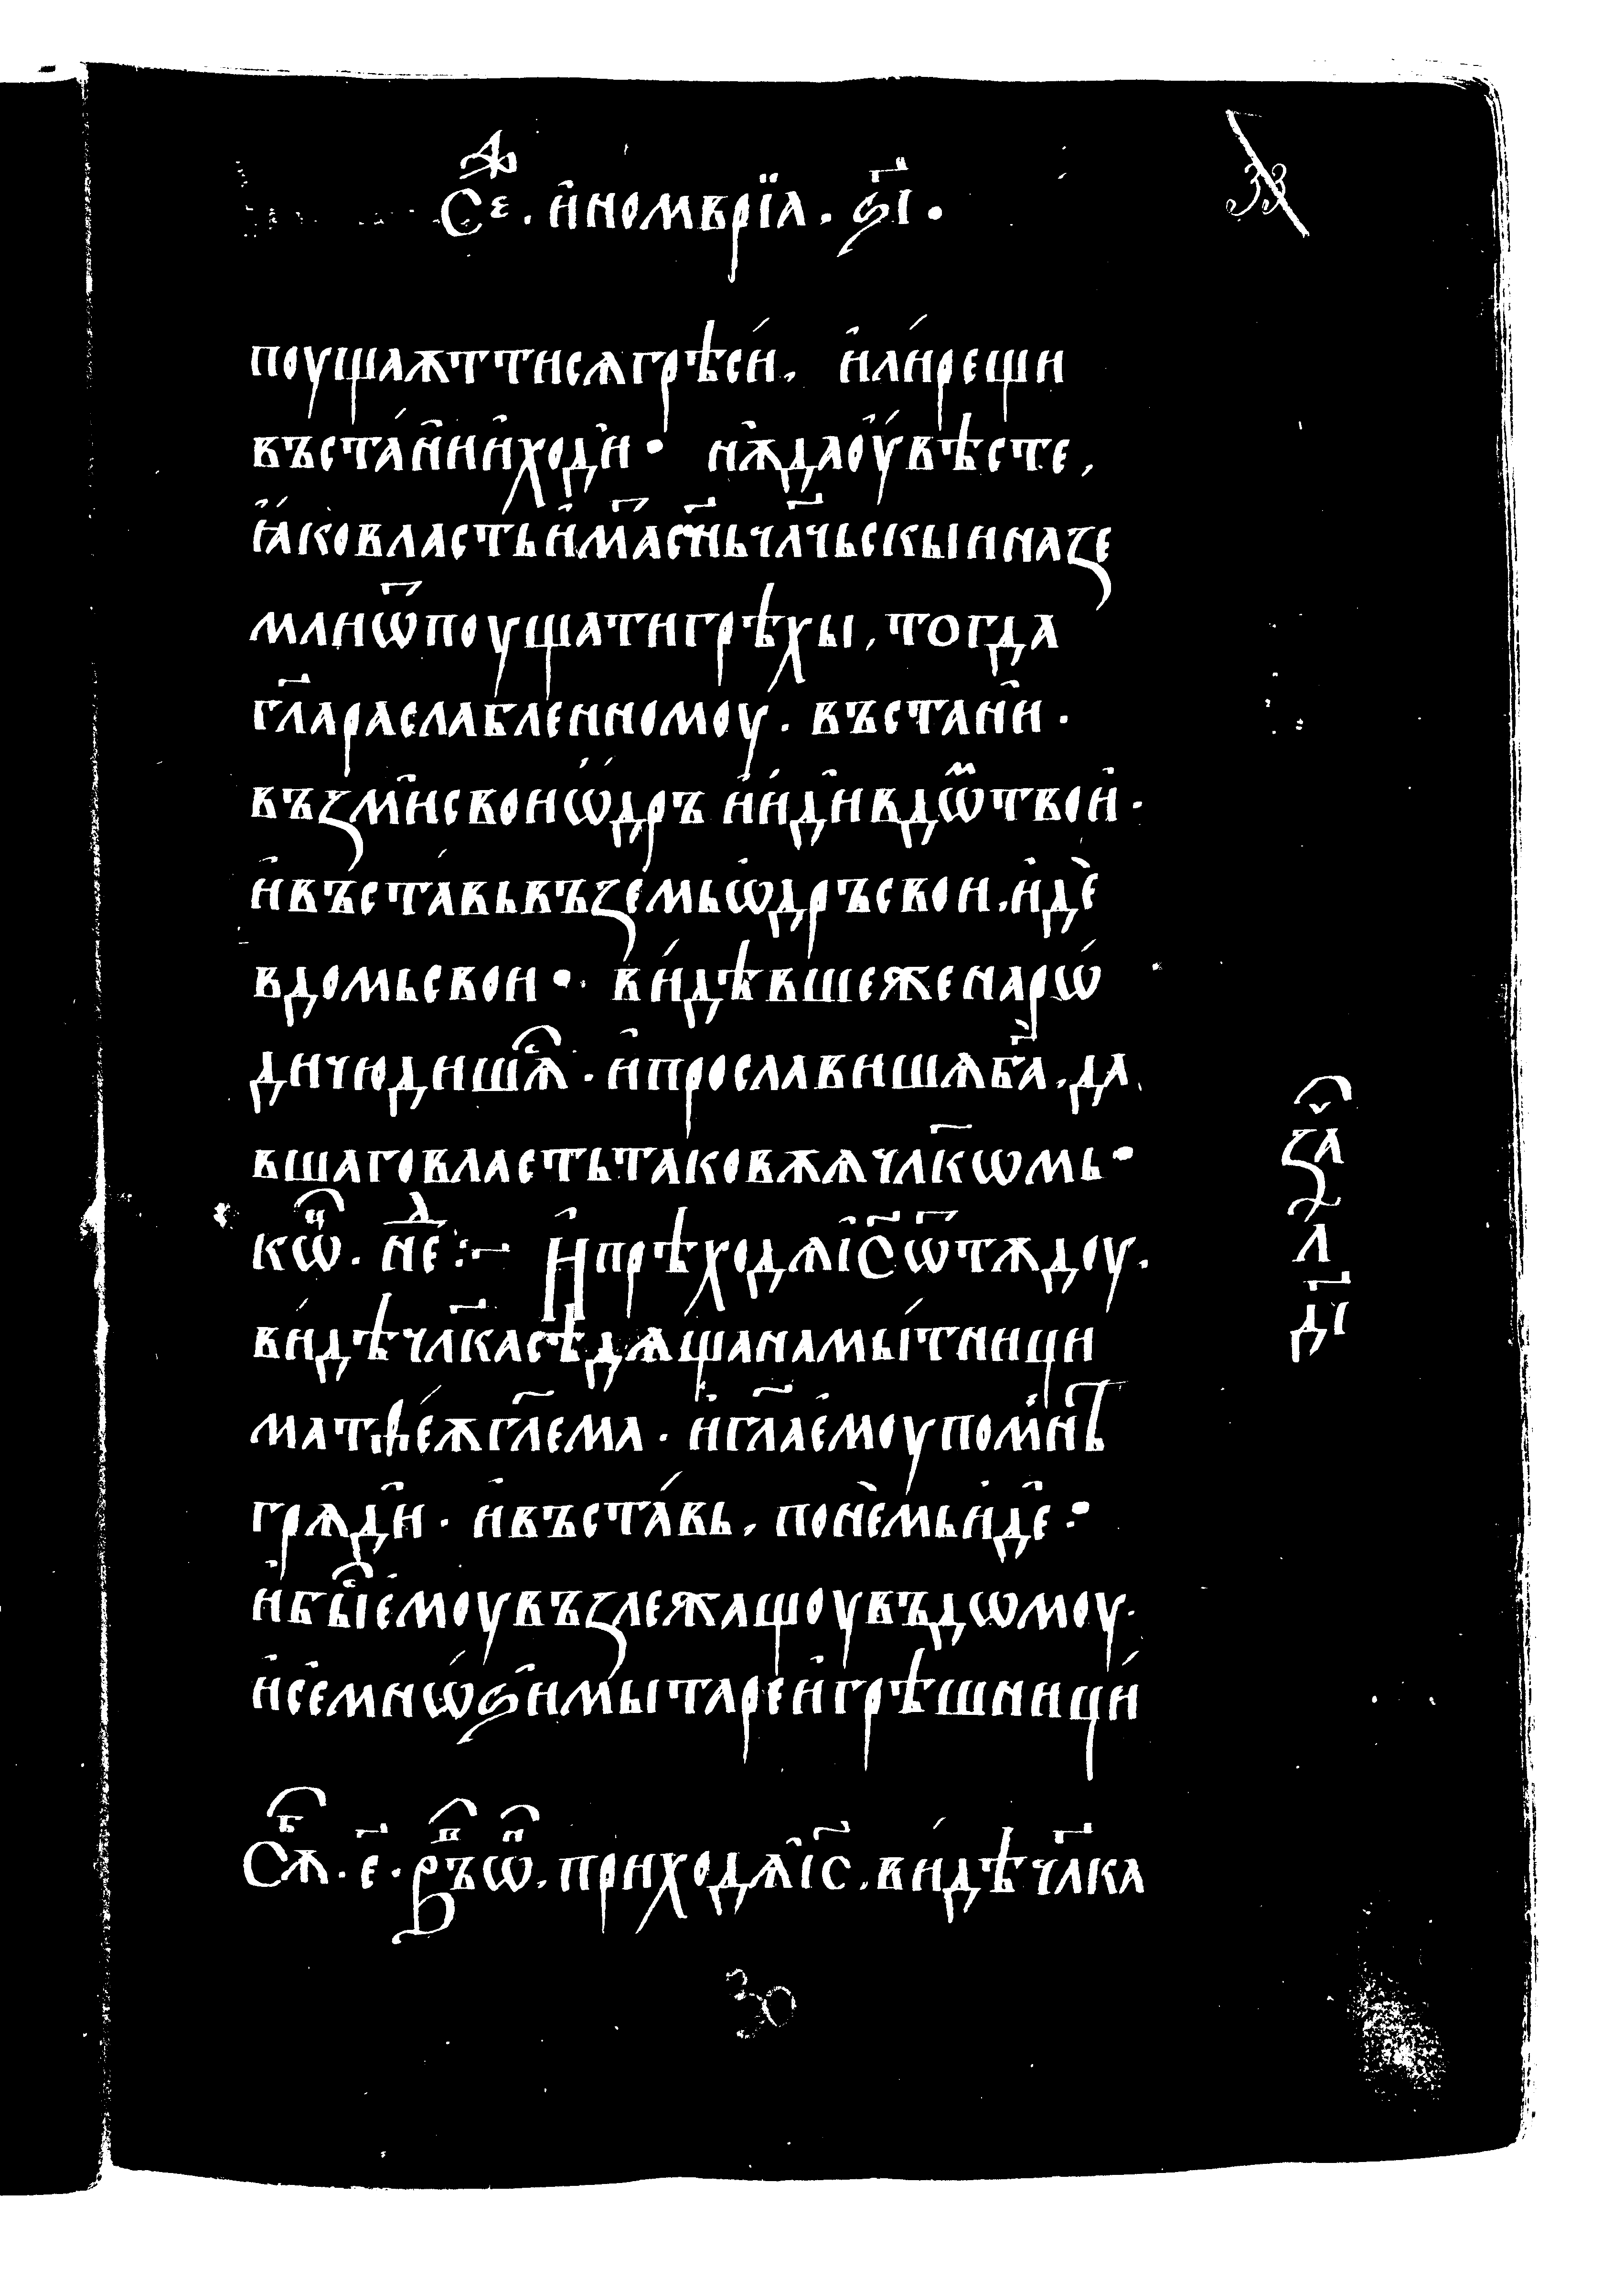 Сре҃ . и҆номврїа . ѕ҃і .
33
поущаѫттисѧгрѣсѝ, и҆лѝрещи
въста́нѝи҆ходѝ • нѫдаоу҆́вѣсте,
ꙗ҆́ковластьи҆ма҃с҃ньчл҃чьскыинаꙁе
млиѿпоущатигрѣхы, тогда
гл҃араслабленномоу . въстани҆ .
въꙁми҆своиѡ҆́дръ и҆и҆́дивдѡⷨтвои҆ .
и҆въста́вьвъꙁе́мьѡ҆дръсвои . и҆дѐ
вдомьсвои • ви́дѣвшеженарѡ́
дичюдишѧⷭ҇ . и҆прославишѧб҃а . да
вшаговластьтаковѫѧчлк҃ѡмь •
кѡⷩ҇ . неⷣ :~ И҆прѣходѧі҆с҃ѿтѫдоу .
ви́дѣчлк҃асѣдѧщанамы́тници
матѳе́ѫгл҃ема . и҆гл҃ае҆моупоми҆нѣ
грѧди҆ . и҆въста́вь, понѐмьи҆де҆ :
и҆быⷭ҇е҆моувъꙁлежащоувъдѡмоу .
и҆се҆мнѡ́ѕи҆мытарей҆грѣшници́
Сѫⷠ҇ . е҃ . р҃ъѡⷩ҇ . приходѧі҆с҃ . ви́дѣчл҃ка
ꙁаⷱ҇
л
д҃і
30